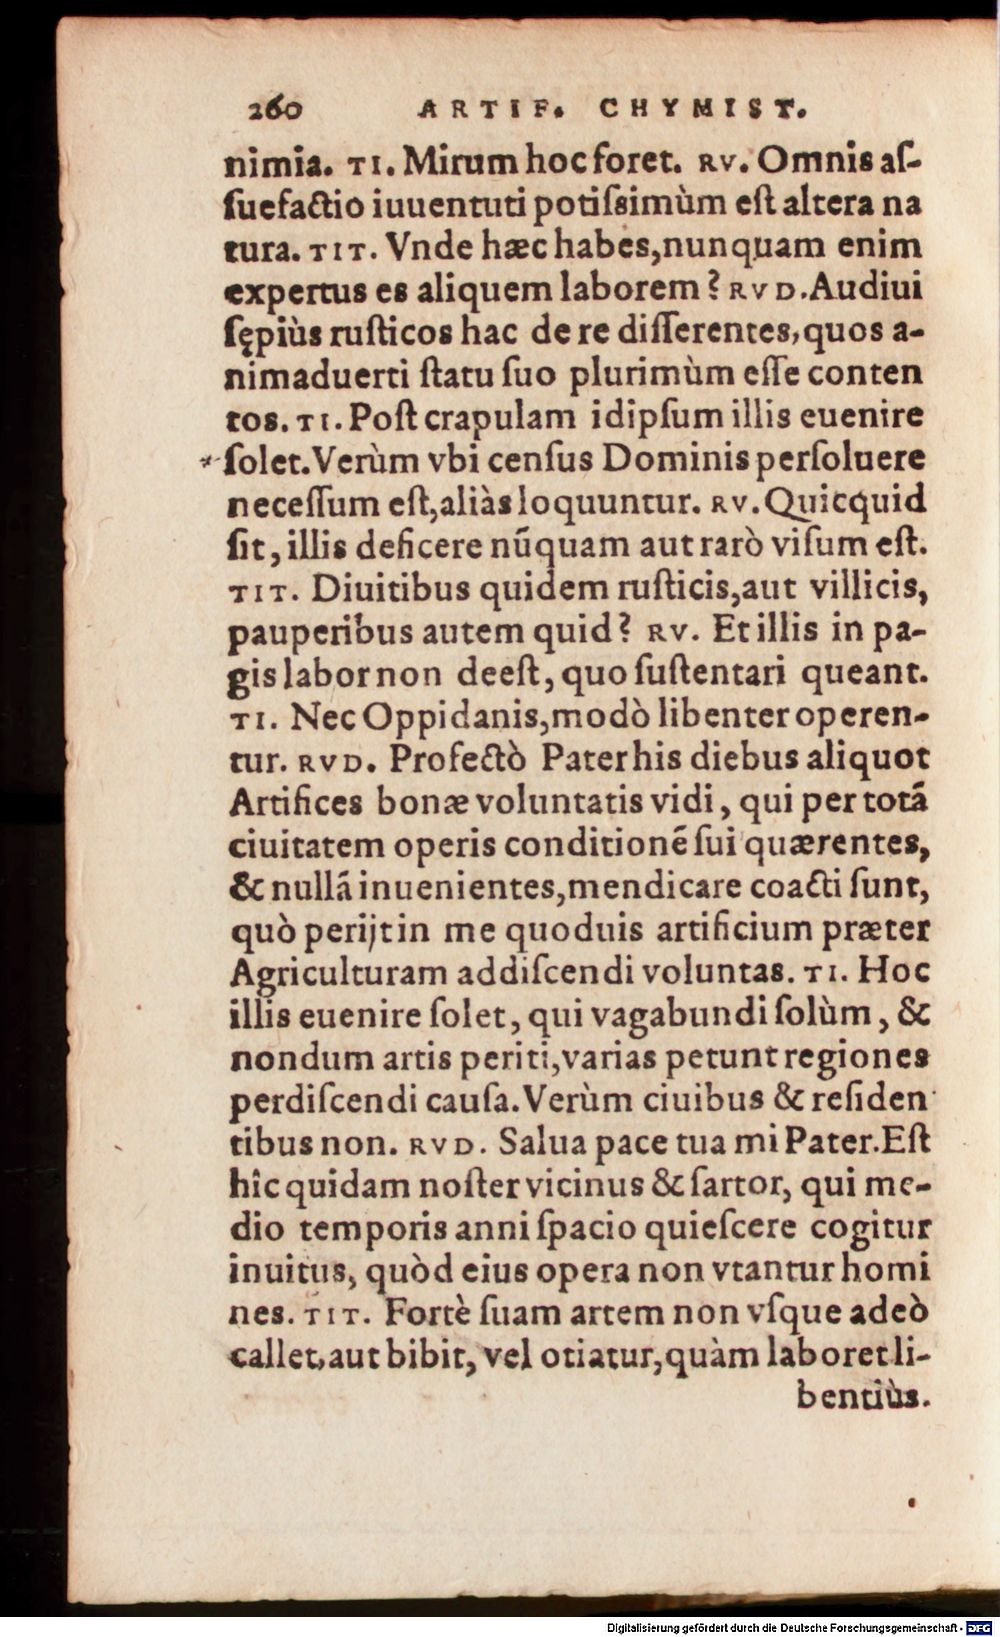 260 ARTIF. CHYMIST.
nimia. TI. Mirum hoc foret. RV. Omnis aſ-
ſuefactio iuuentuti potiſsimùm eſt altera na
tura. TIT. Vnde hæc habes, nunquam enim
expertus es aliquem laborem? RVD. Audiui
ſępiùs ruſticos hac de re diſſerentes, quos a-
nimaduerti ſtatu ſuo plurimùm eſſe conten
tos. TI. Poſt crapulam idipſum illis euenire
ſolet. Verùm vbi cenſus Dominis perſoluere
neceſſum eſt, aliàs loquuntur. RV. Quicquid
ſit, illis deficere nũquam aut rarò viſum eſt.
TIT. Diuitibus quidem ruſticis, aut villicis,
pauperibus autem quid? RV. Et illis in pa-
gis labor non deeſt, quo ſuſtentari queant.
TI. Nec Oppidanis, modò libenter operen-
tur. RVD. Profectò Pater his diebus aliquot
Artifices bonæ voluntatis vidi, qui per totã
ciuitatem operis conditionẽ ſui quærentes,
& nullã inuenientes, mendicare coacti ſunt,
quò perijt in me quoduis artificium præter
Agriculturam addiſcendi voluntas. TI. Hoc
illis euenire ſolet, qui vagabundi ſolùm, &
nondum artis periti, varias petunt regiones
perdiſcendi cauſa. Verùm ciuibus & reſiden
tibus non. RVD. Salua pace tua mi Pater. Eſt
hîc quidam noſter vicinus & ſartor, qui me-
dio temporis anni ſpacio quieſcere cogitur
inuitus, quòd eius opera non vtantur homi
nes. TIT. Fortè ſuam artem non vſque adeò
callet, aut bibit, vel otiatur, quàm laboret li-
bentiùs.
Digitalisierung gefördert durch die Deutsche Forschungsgemeinschaft - DFG